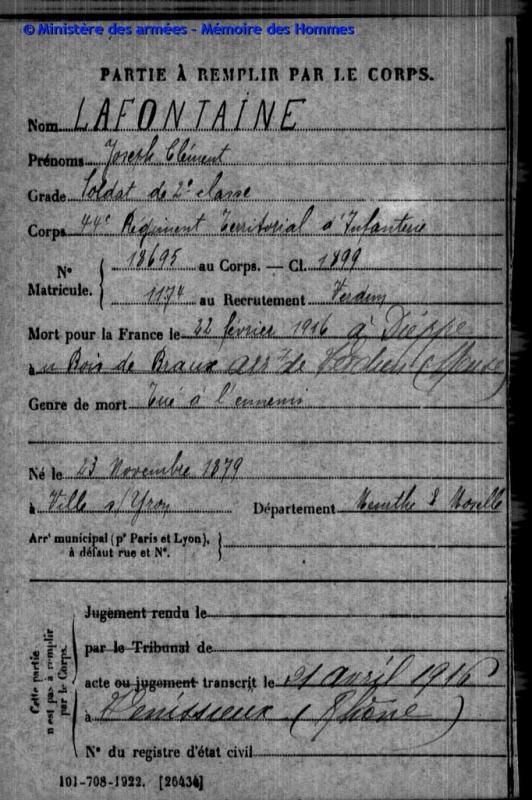 © Ministère des armées - Mémoire des Hommes
PARTIE À REMPLIR PAR LE CORPS.
Nom LAFONTAINE
Prénoms Joseph Clément
Grade Soldat de 2e classe
Corps 44e Régiment Territorial d'Infanterie
N° Matricule. 18695 au Corps. — Cl. 1899
1174 au Recrutement Verdun
Mort pour la France le 22 février 1916 à Dieppe
à u Bois de Braux arrt de Verdun (Meuse)
Genre de mort Tué à l'ennemi
Né le 23 Novembre 1879
à Ville s/Yron Département Meurthe & Moselle
Arrt municipal (pr Paris et Lyon),
à défaut rue et N°.
Cette partie
n'est pas à remplir
par le Corps.
Jugement rendu le
par le Tribunal de
acte ou jugement transcrit le 21 avril 1916
à Venissieux (Rhône)
N° du registre d'état civil
101-708-1922. [26434]